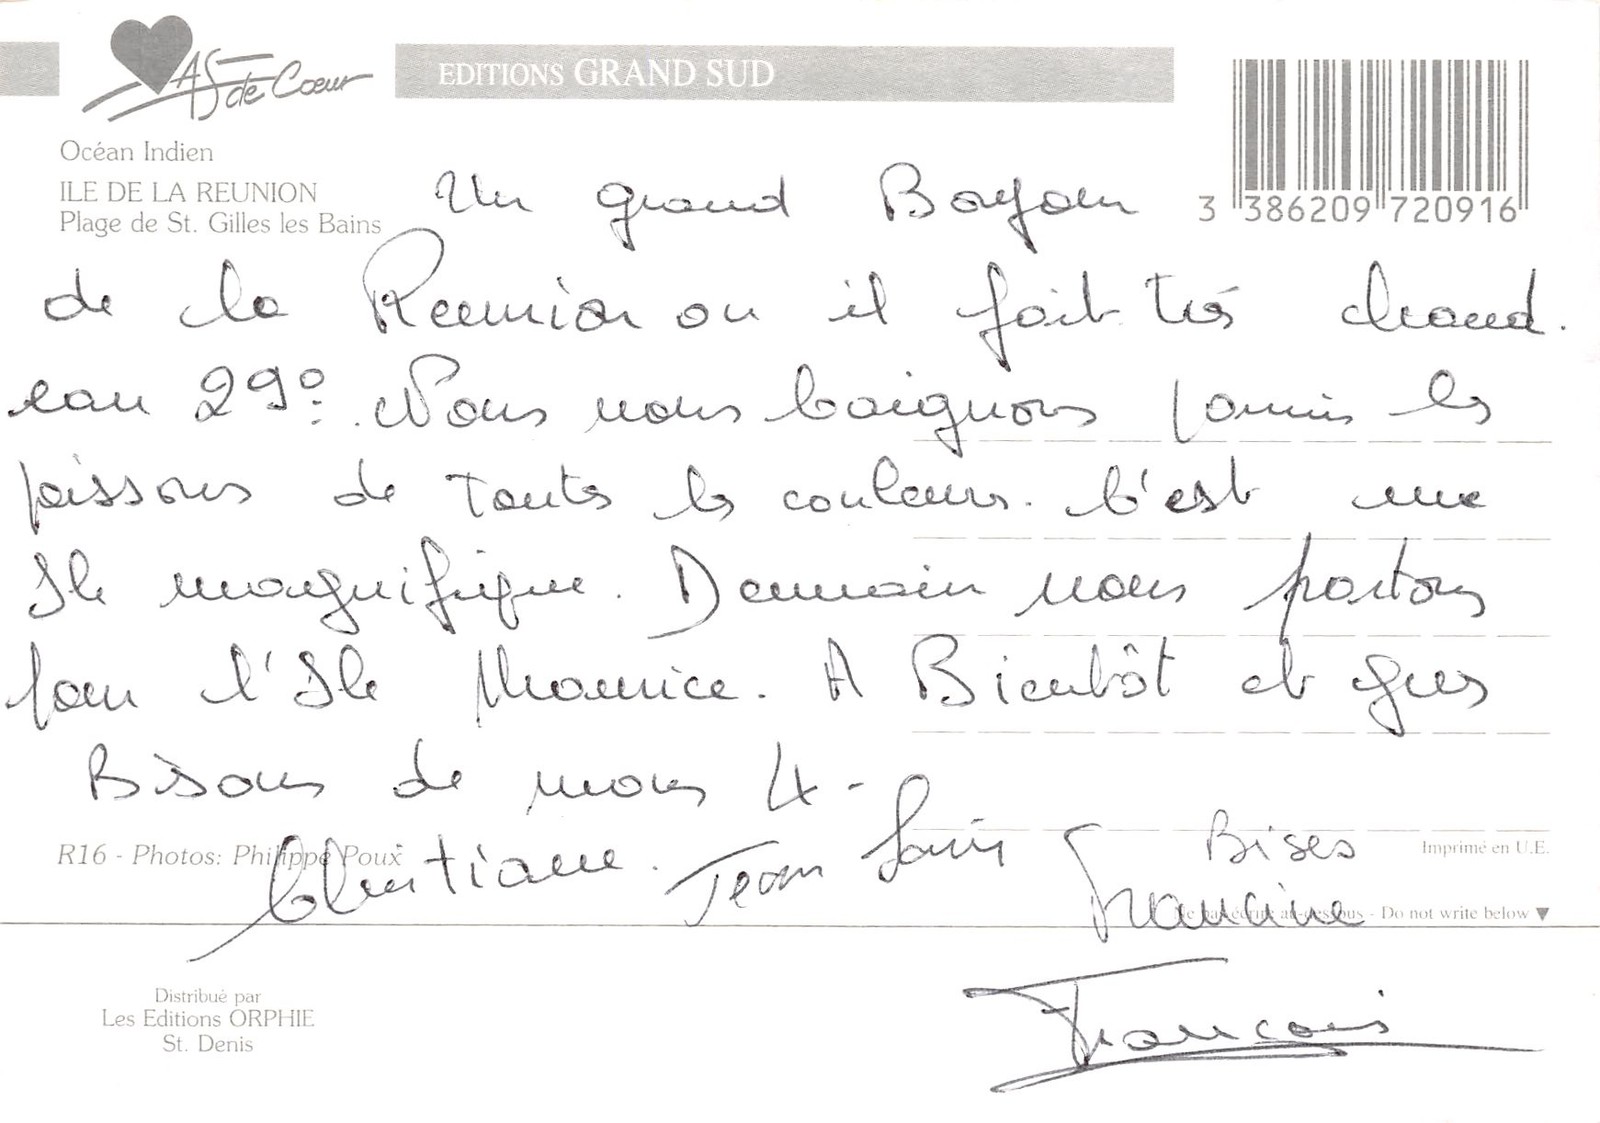 As de Cœur
EDITIONS GRAND SUD
Océan Indien
ILE DE LA REUNION
Plage de St. Gilles les Bains
3 386209 720916
Un grand Bonjour
de la Reunion ou il fait très chaud.
eau 29°. Nous nous baignons parmis les
poissons de toutes les couleurs. C'est une
Ile magnifique. Demain nous partons
pour l'Ile Maurice. A Bientôt et gros
Bisous de nous 4-
R16 - Photos: Philippe Poux
Christiane. Jean Louis
Bises
Francine
Imprimé en U.E.
Ne pas écrire au-dessous - Do not write below ▼
François
Distribué par
Les Editions ORPHIE
St. Denis